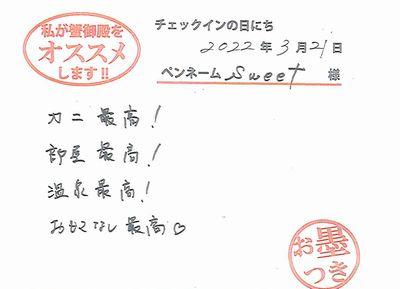 私が蟹御殿を
オススメ
します!!
チェックインの日にち
2022年3月21日
ペンネーム Sweet 様
カニ 最高!
部屋 最高!
温泉 最高!
おもてなし 最高♡
お墨
つき